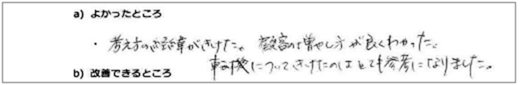 a) よかったところ
・考え方の per がきけた。数字の増やし方が良くわかった。
転機についてきけたのはとても参考になりました。
b) 改善できるところ